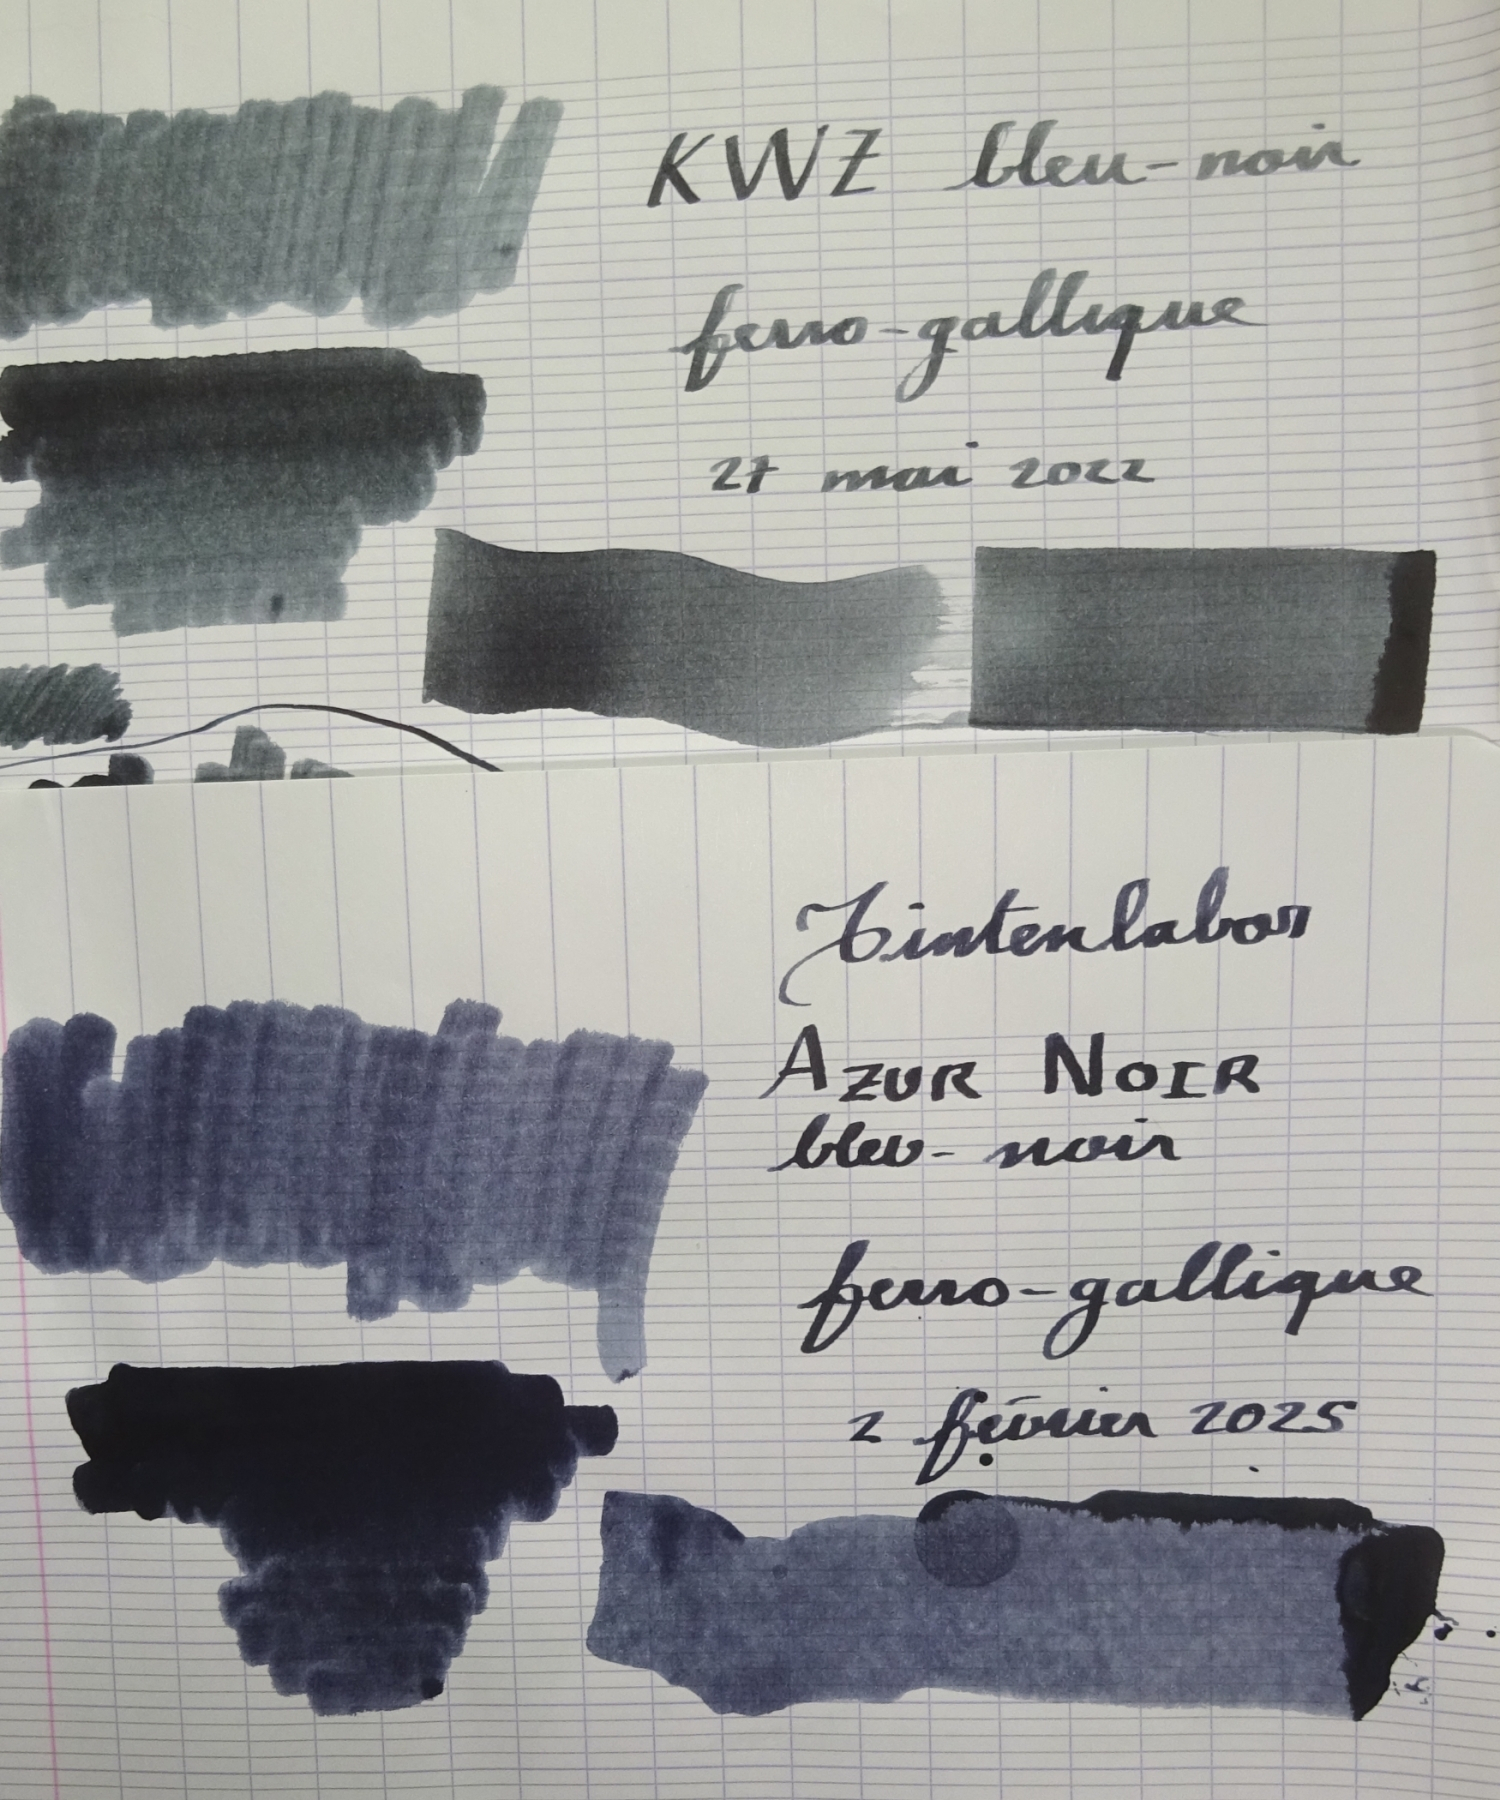 KWZ bleu-noir
ferro-gallique
27 mai 2022
Tintenlabor
AZUR NOIR
bleu-noir
ferro-gallique
2 février 2025